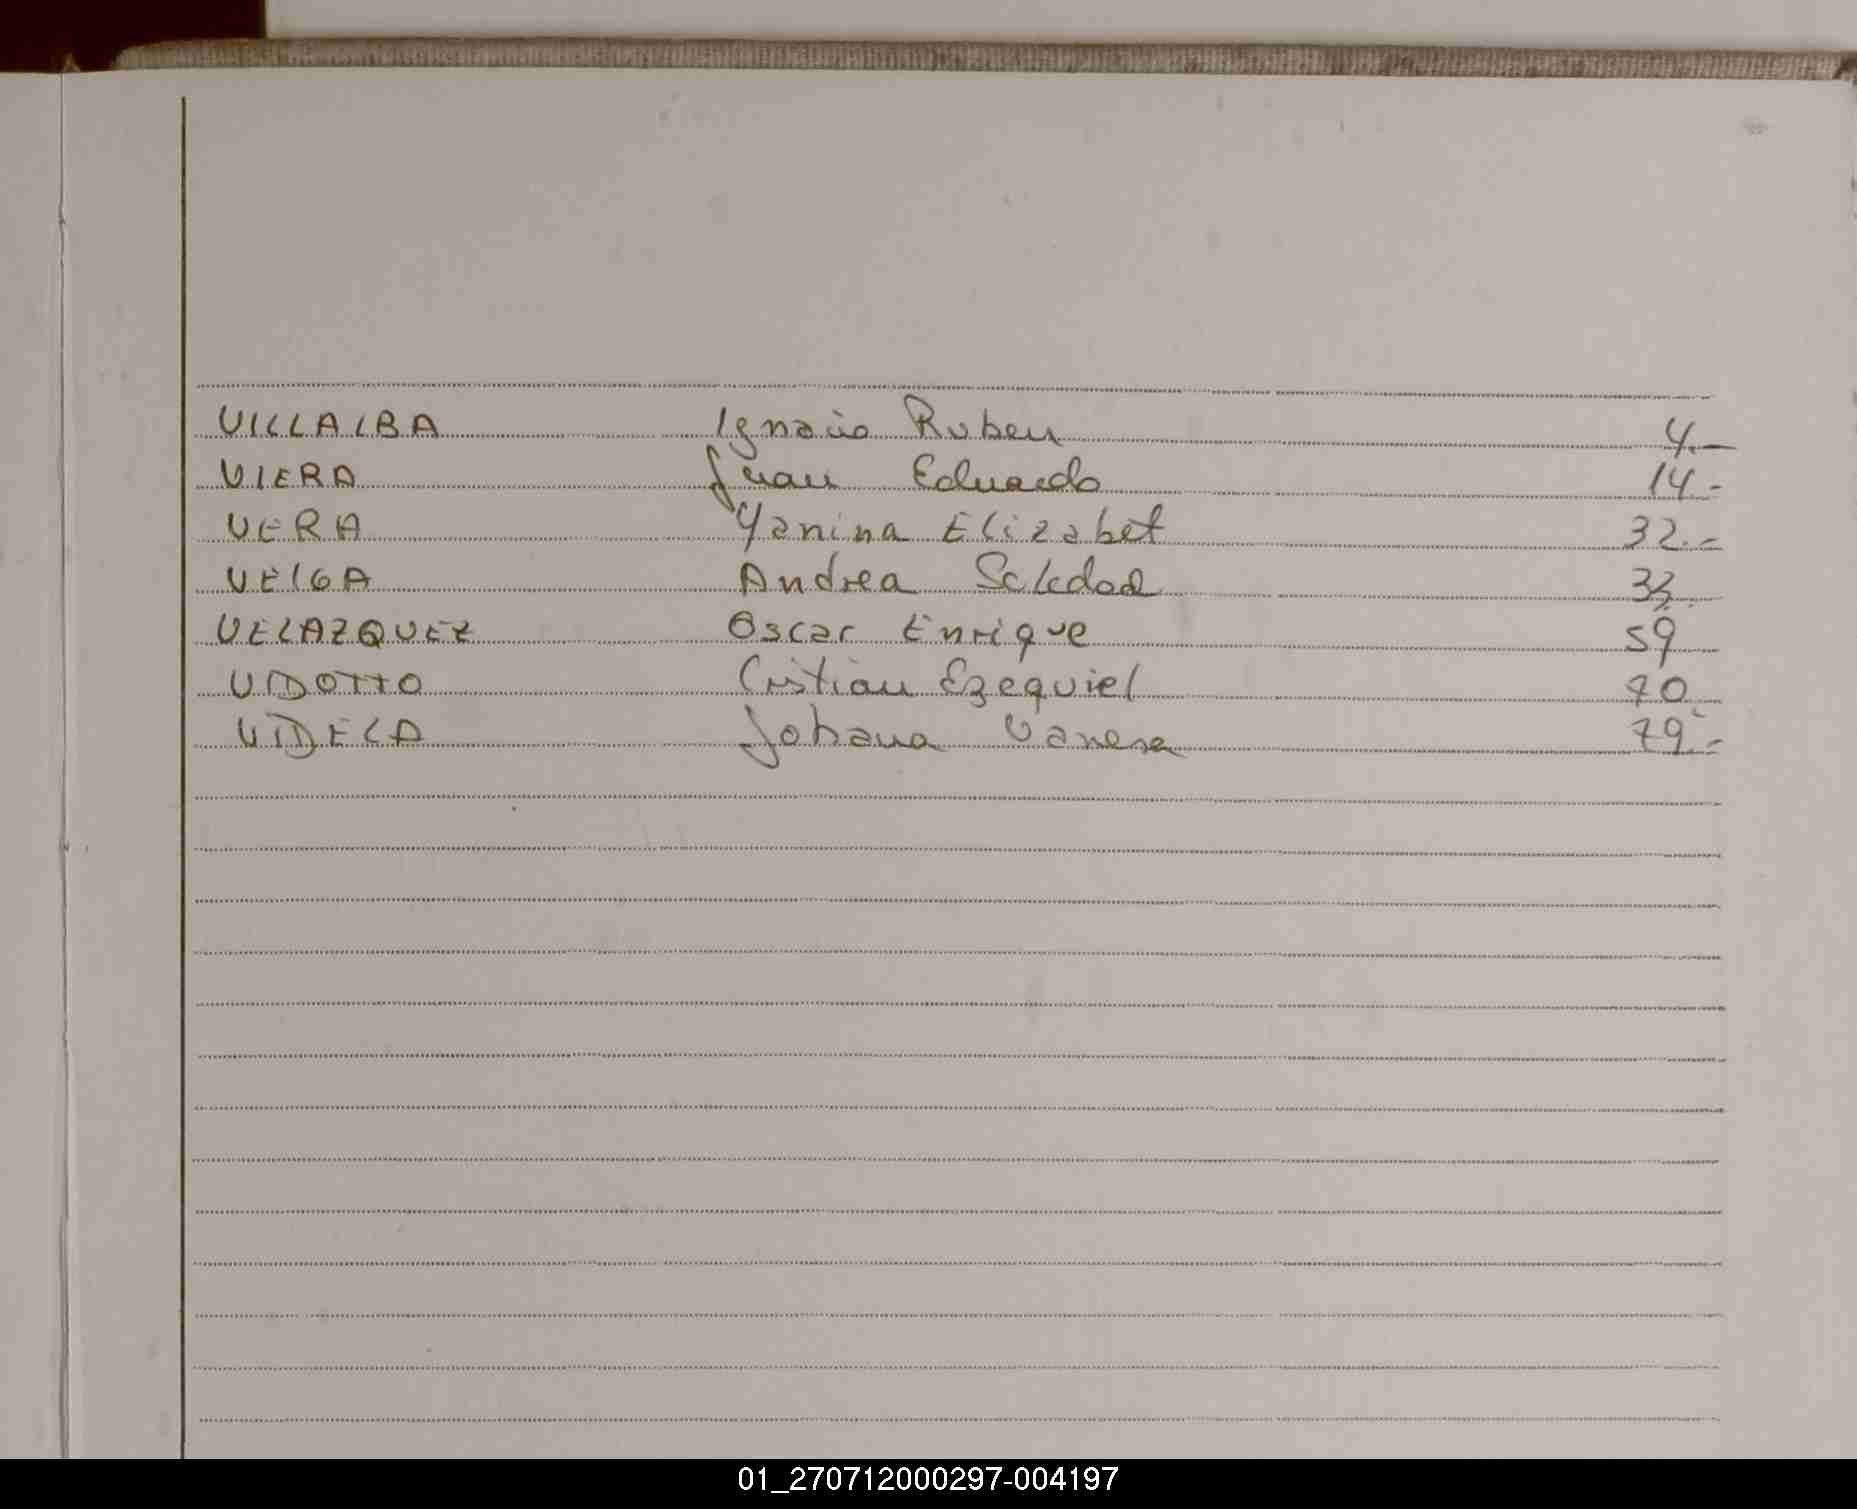 VILLALBA Ignacio Ruben 4.-
VIERA Juan Eduardo 14.-
VERA Yanina Elizabet 32.-
VEIGA Andrea Soledad 33.
VELAZQUEZ Oscar Enrique 59
VIDOTTO Cristian Ezequiel 70
VIDELA Johana Vanesa 79.-
01_270712000297-004197